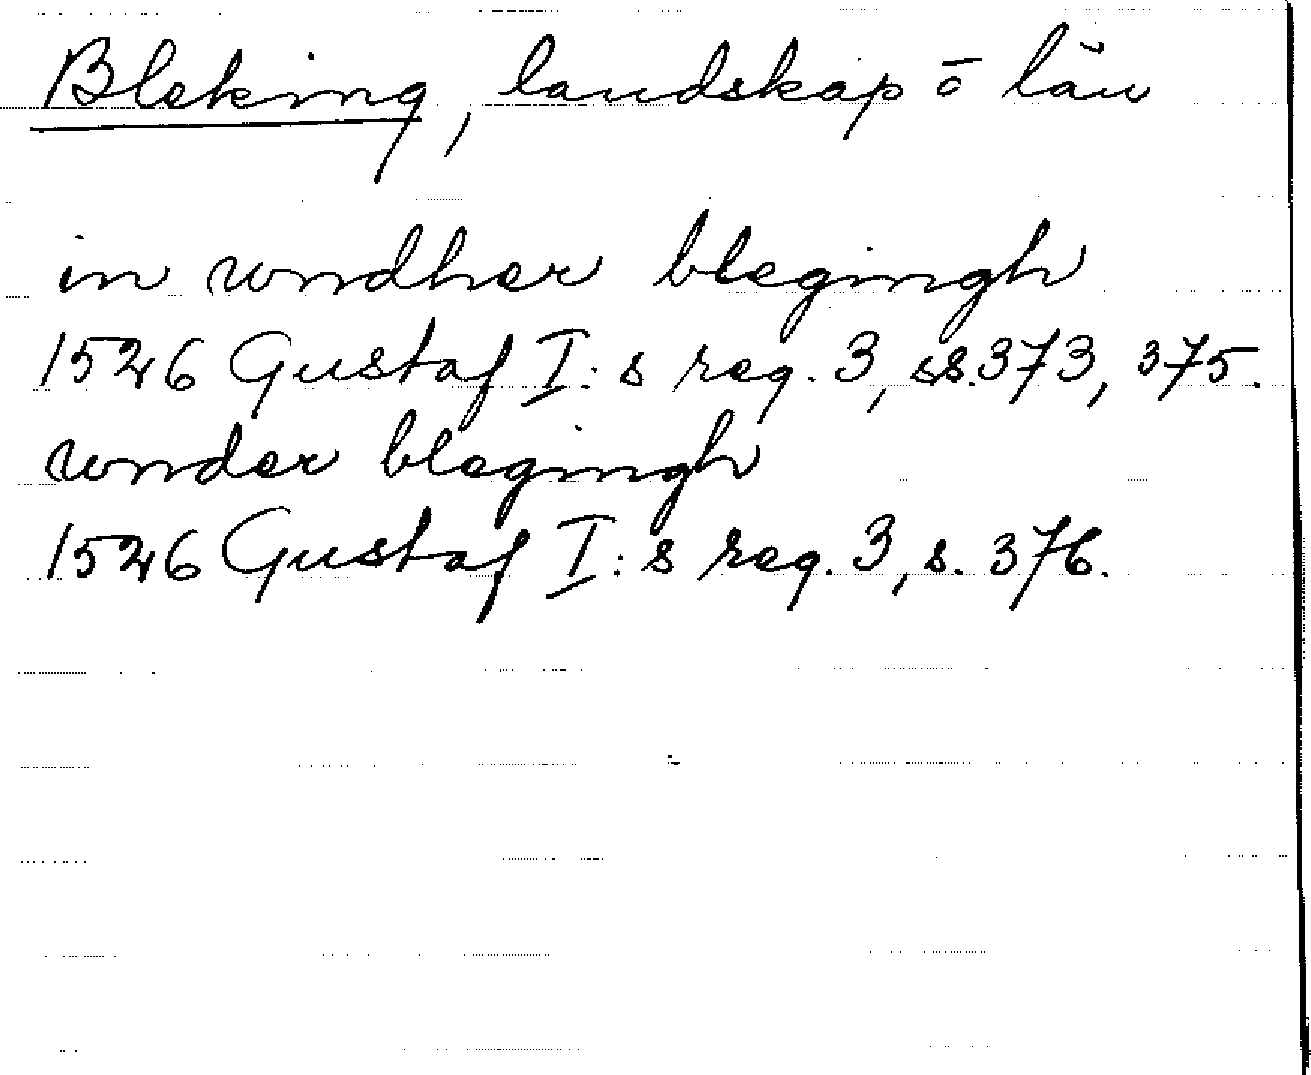 Bleking, landskap o län
in wndher blegingh
1526 Gustaf I:s reg. 3, ss. 373, 375.
wnder blegingh
1526 Gustaf I:s reg. 3, s. 376.